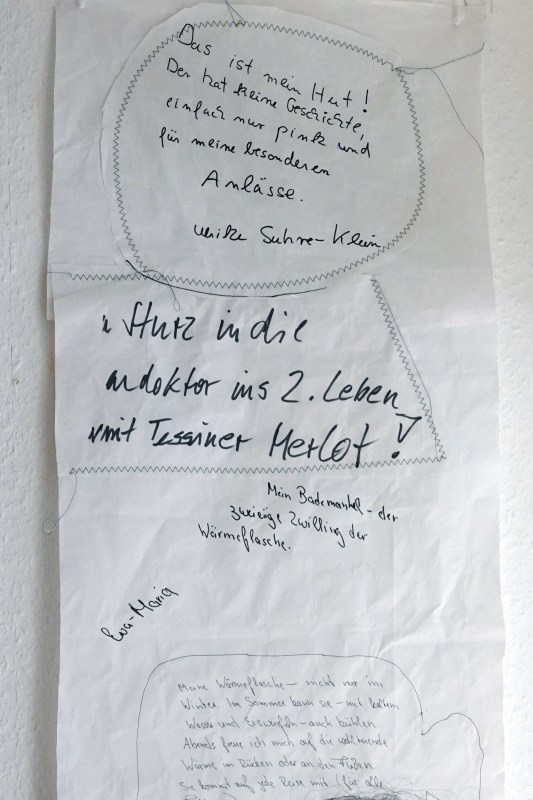 Das ist mein Hut!
Der hat keine Geschichte,
einfach nur pink und
für meine besonderen
Anlässe.
Ulrike Suhre-Klein
Sturz in die
ins 2. Leben
mit Tessiner Merlot!
Mein Bademantel - der
Zwilling der
Wärmeflasche.
Eva-Maria
Meine Wärmeflasche - nicht nur im
Winter. Im Sommer kann sie - mit kaltem
Wasser und Eiswürfeln - auch kühlen
Abends freue ich mich auf die wohltuende
Wärme im Rücken oder an den Füßen
Sie kommt auf jede Reise mit (für alle